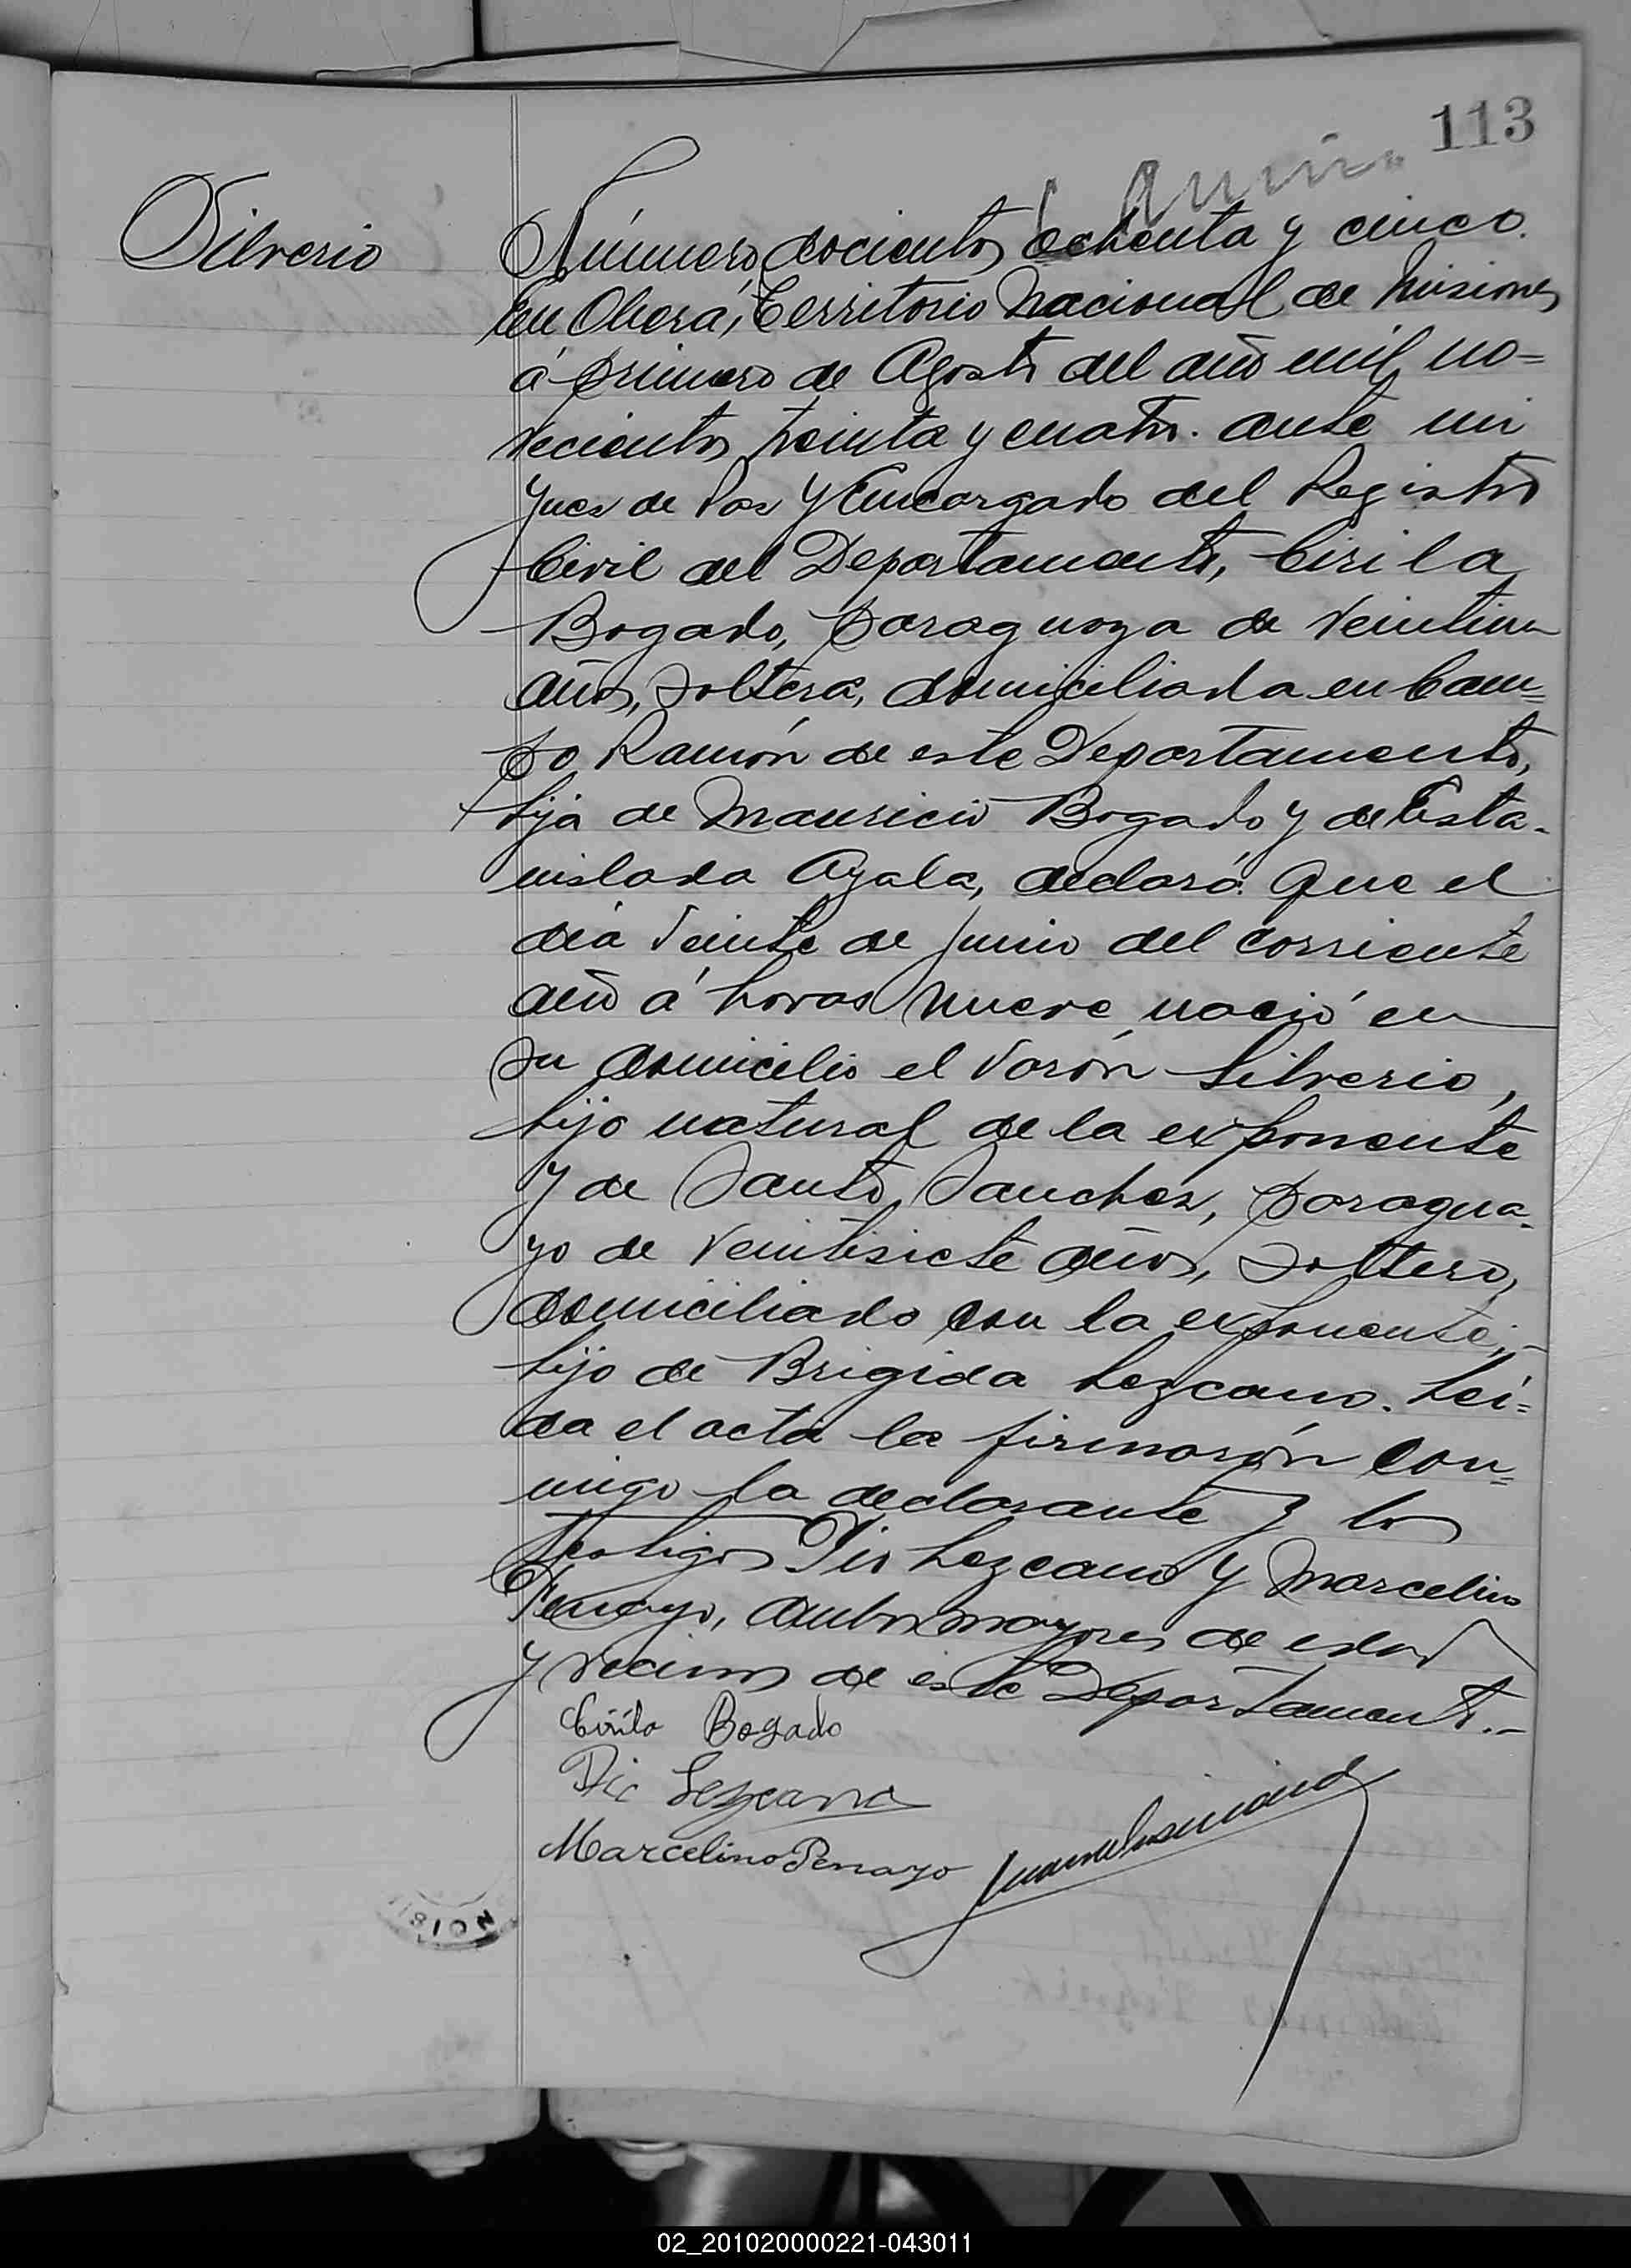 113
Silverio
Número docientos ochenta y cinco.
En Oberá, Territorio Nacional de Misiones
á primero de Agosto del año mil no=
vecientos treinta y cuatro. ante mi
Juez de Paz y Encargado del Registro
Civil del Departamento, Cirila
Bogado, paraguaya de veintiun
años, soltera, domiciliada en Cam=
po Ramón de este Departamento,
hija de Mauricio Bogado y de Esta-
nislada Ayala, declaró: Que el
día veinte de junio del corriente
año á horas nueve nació en
su domicilio el varón Silverio,
hijo natural de la exponente
y de Santo Sanchez, paragua-
yo de veintisiete años, soltero,
domiciliado con la exponente,-
hijo de Brigida Lezcano. Leí=
da el acta la firmarón con=
migo la declarante y los
testigos Pio Lezcano y Marcelino
Penayo, ambos mayores de edad
y vecinos de este Departamento.-
Cirila Bogado
Pio Lezcano
Marcelino Penayo
ISION
02_201020000221-043011